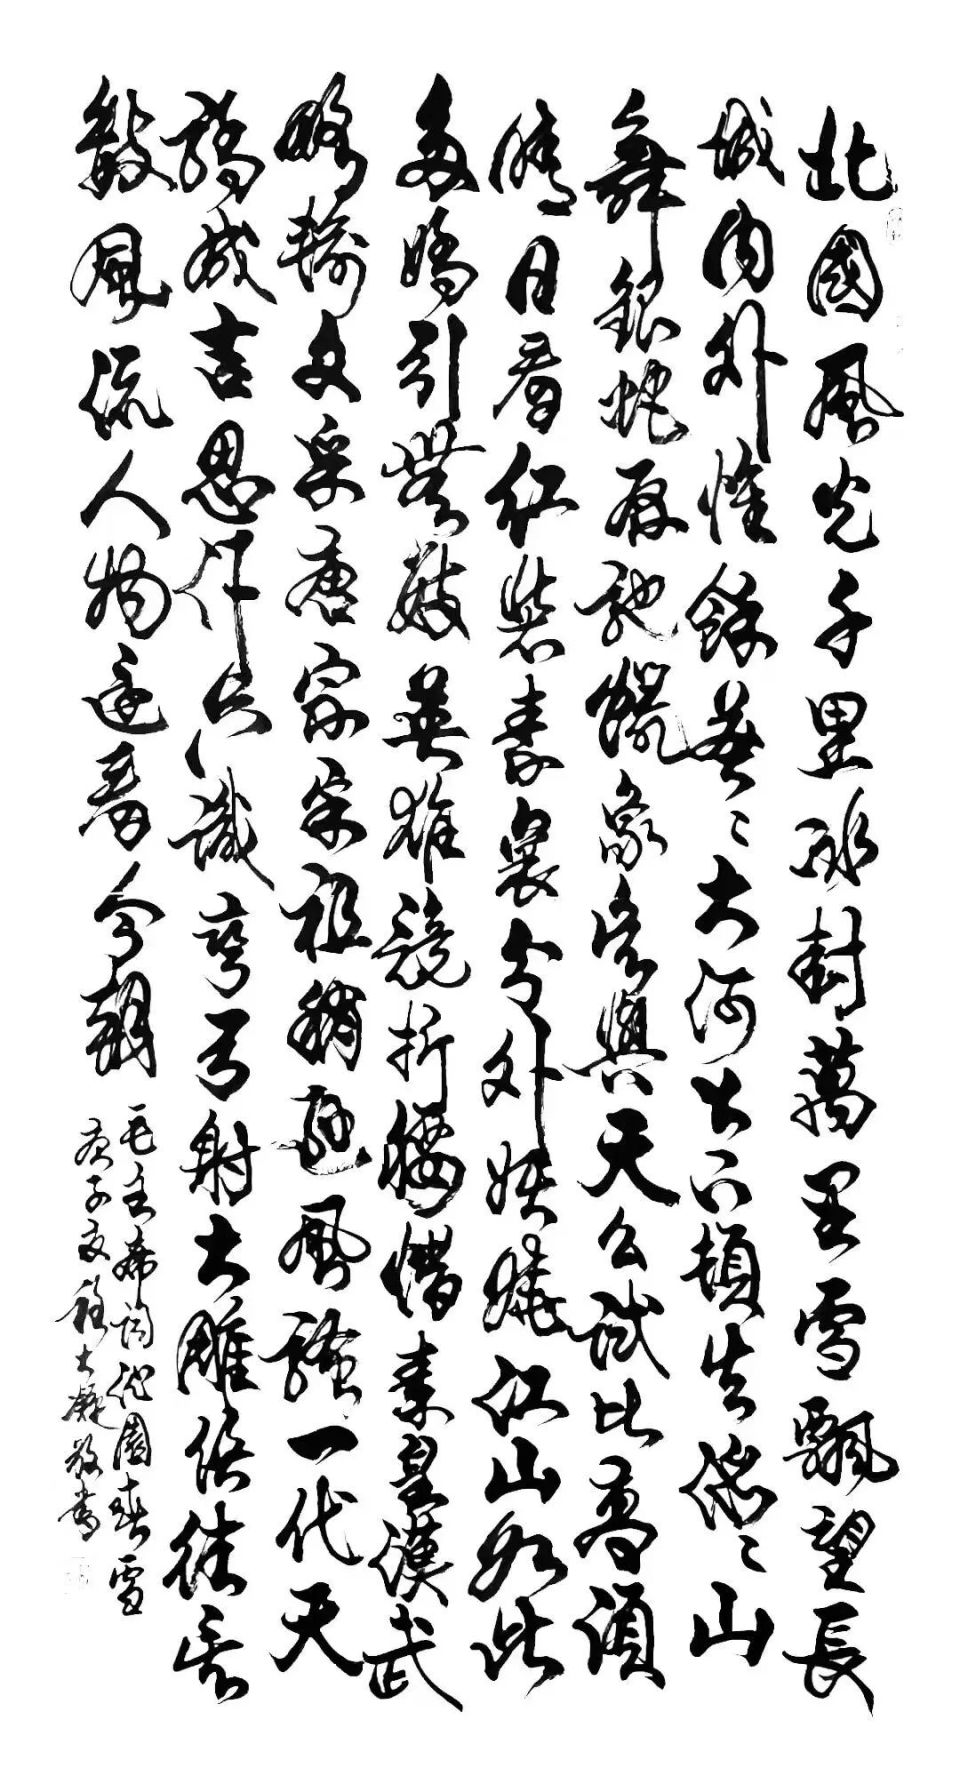 北國風光千里冰封萬里雪飄望長
城内外惟餘莽〻大河上下頓失滔〻山
舞銀蛇原馳蠟象欲與天公試比高須
晴日看紅裝素裹分外妖嬈江山如此
多嬌引無數英雄競折腰惜秦皇漢武
略輸文采唐宗宋祖稍遜風騷一代天
驕成吉思汗只識彎弓射大雕俱往矣
數風流人物還看今朝
毛主席詞沁園春雪
庚子夏 大 敬書